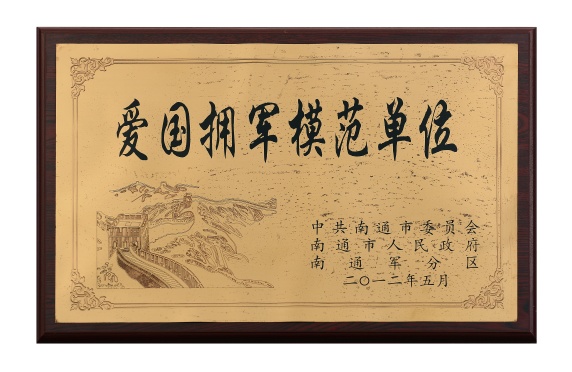 爱国拥军模范单位
中共南通市委员会
南通市人民政府
南通军分区
二〇一二年五月